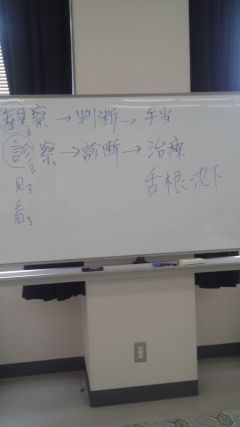 観察→判断→手当
診察→診断→治療
見る
看る
舌根沈下